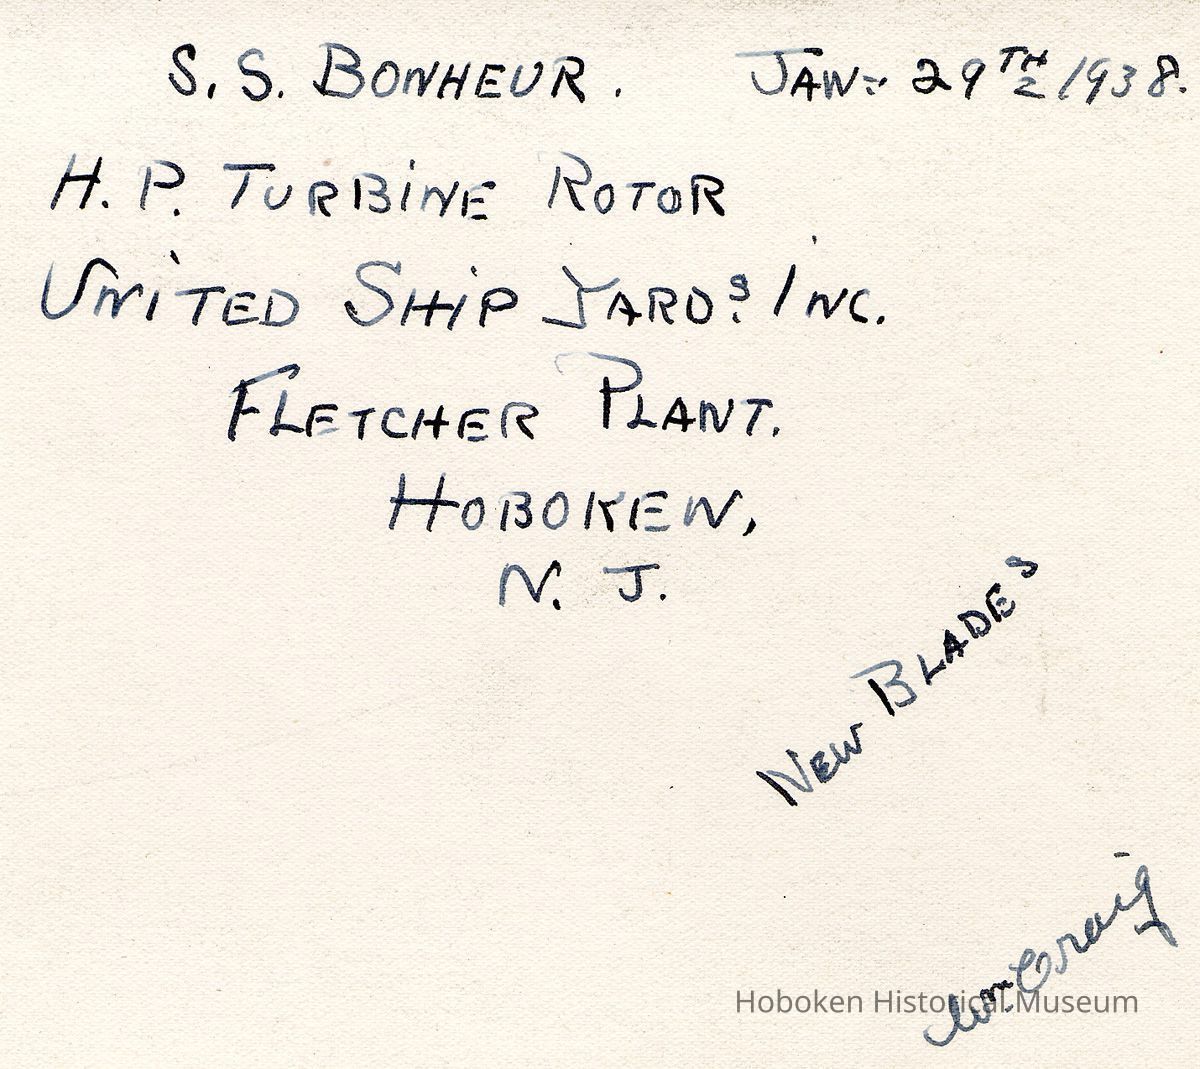 S. S. BONHEUR. JAN: 29TH 1938.
H. P. TURBINE ROTOR
UNITED SHIP YARDS. INC.
FLETCHER PLANT.
HOBOKEN,
N. J.
NEW BLADES
Wm. Craig
Hoboken Historical Museum